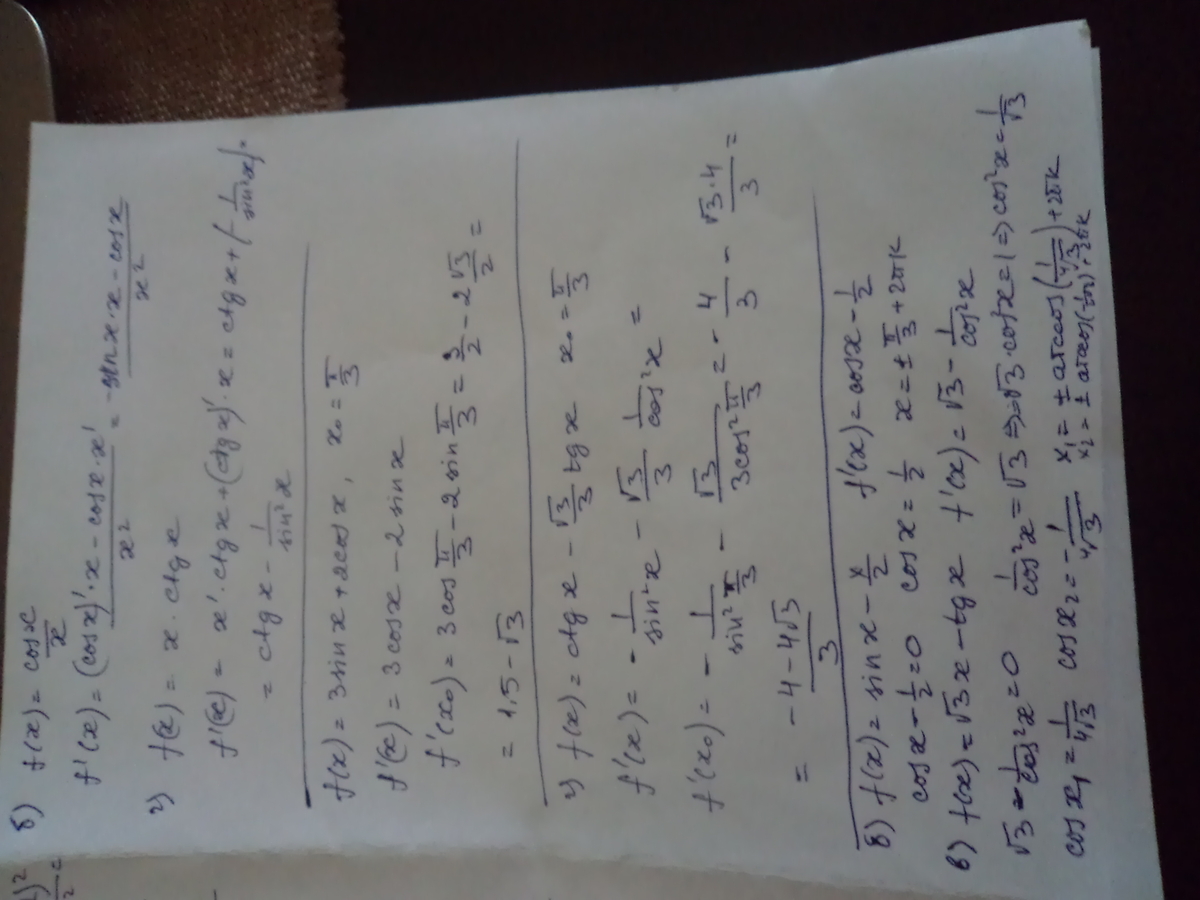 б) f(x) = cosx/x
f'(x) = ((cosx)'·x - cosx·x')/x² = (-sinx·x - cosx)/x²
г) f(x) = x·ctgx
f'(x) = x'·ctgx+(ctgx)'·x = ctgx+(-1/sin²x)=
= ctgx - 1/sin²x
f(x) = 3sinx+2cosx, x₀ = π/3
f'(x) = 3cosx - 2sinx
f'(x₀) = 3cos π/3 - 2sin π/3 = 3/2 - 2√3/2 =
= 1,5 - √3
г) f(x) = ctgx - √3/3 tgx x₀ = π/3
f'(x) = - 1/sin²x - √3/3 1/cos²x =
f'(x₀) = - 1/sin² π/3 - √3/3cos² π/3 = - 4/3 - √3·4/3 =
= (-4-4√3)/3
б) f(x) = sinx - x/2 f'(x) = cosx - 1/2
cosx - 1/2 = 0 cosx = 1/2 x = ± π/3 + 2πk
в) f(x) = √3x - tgx f'(x) = √3 - 1/cos²x
√3 - 1/cos²x = 0 1/cos²x = √3 => √3·cos²x = 1 => cos²x = 1/√3
cosx₁ = 1/⁴√3 cosx₂ = - 1/⁴√3 x₁ = ± arccos(1/⁴√3)+2πk